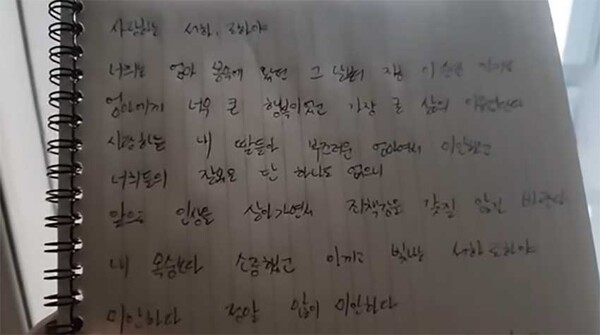 사랑하는 서하, 로하야
너희는 엄마 품속에 왔던 그 날부터 지금 이 순간 까지도
엄마에게 너무 큰 행복이었고 가장 큰 삶의 이유란다
사랑하는 내 딸들아 부끄러운 엄마여서 미안했고
너희들의 잘못은 단 하나도 없으니
앞으로 인생을 살아가면서 죄책감은 갖질 않길 바란다
내 목숨보다 소중했고 아끼고 빛나는 서하 로하야
미안하다 정말 많이 미안하다